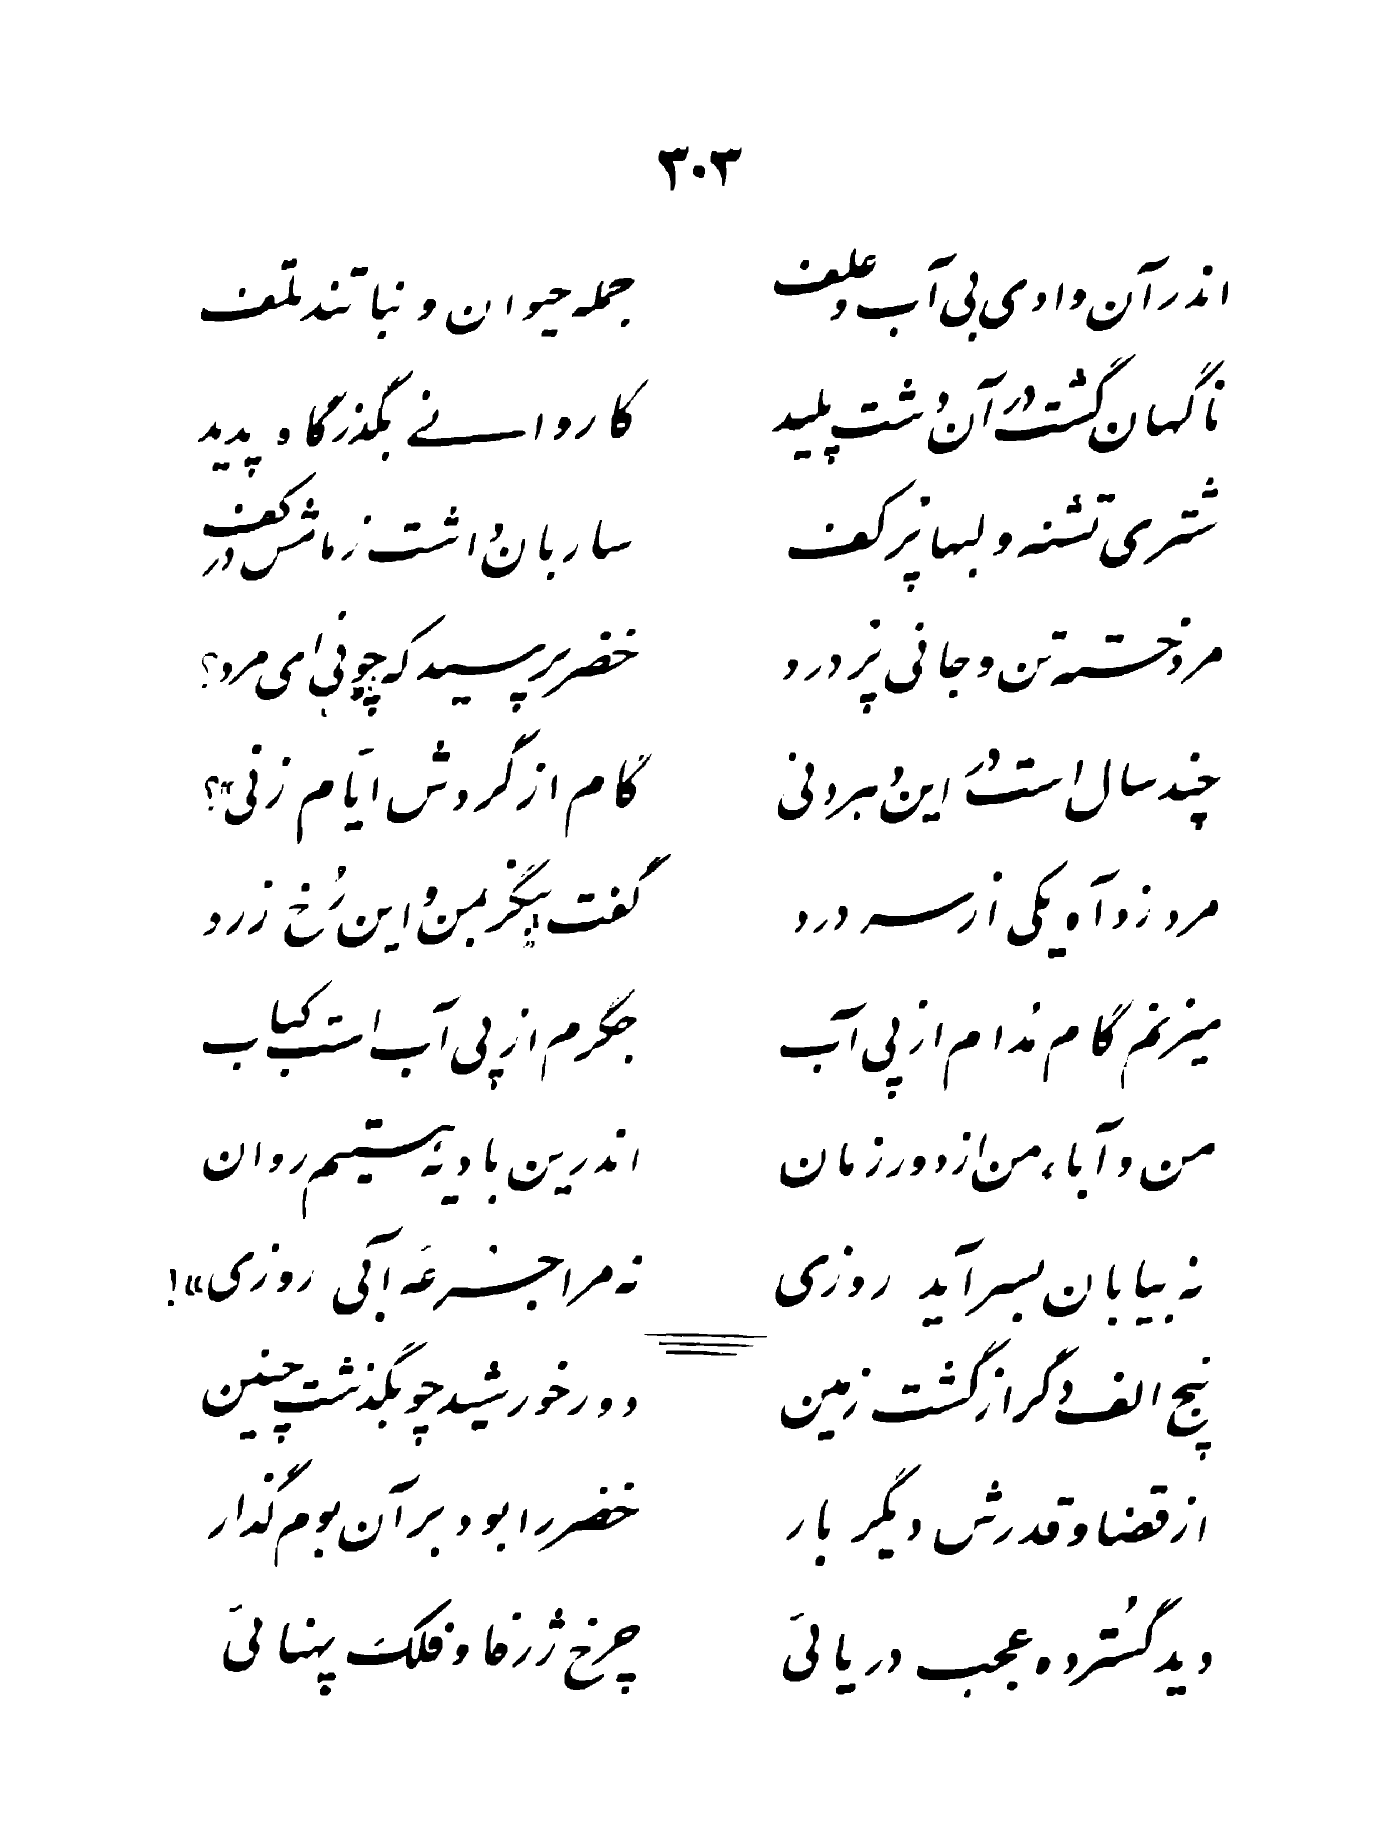 ۳۰۳
اندر آن وادی بی آب و علف	جمله حیوان و نباتند تلف
ناگهان گشت در آن دشت پلید	کاروانی بگذرگاه پدید
شتری تشنه و لبها پر کف	ساربان داشت زمامش در کف
مرد خسته تن و جانی پر درد	خضر پرسید که چونی ای مرد؟
چند سال است در این رهبر دنی	گام از گردش ایّام زنی»؟
مرد زد آه یکی از سر درد	گفت بنگر بمن و این رُخ زرد
میزنم گام مُدام از پی آب	جگرم از پی آب است کباب
من و آباء من از دور زمان	اندرین بادیهٔ ستیم روان
نه بیابان بسر آید روزی	نه مرا جرعهٔ آبی روزی»!
پنج الف دگر از گشت زمین	دور خورشید چو بگذشت چنین
از قضا و قدرش دیگر بار	خضر را بود بر آن بوم گذار
دید گُسترده عجب دریائی	چرخ ژرفا و فلک پهنائی